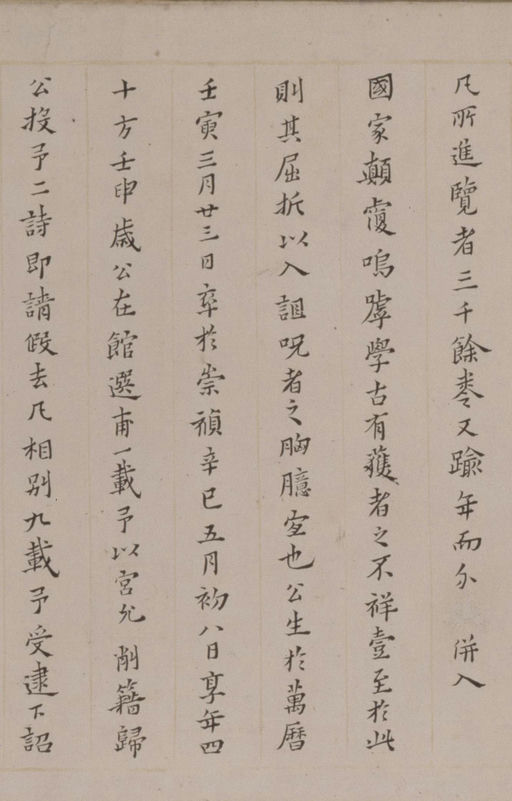 凡所進覽者三千餘卷又踰年而尒 併入
國家顛覆嗚虖學古有獲者之不祥壹至於此
則其屈折以入詛呪者之胸臆宜也公生於萬曆
壬寅三月廿三日卒於崇禎辛巳五月初八日享年四
十方壬申歲公在館選甫一載予以宮允削籍歸
公投予二詩即請假去凡相別九載予受逮下詔